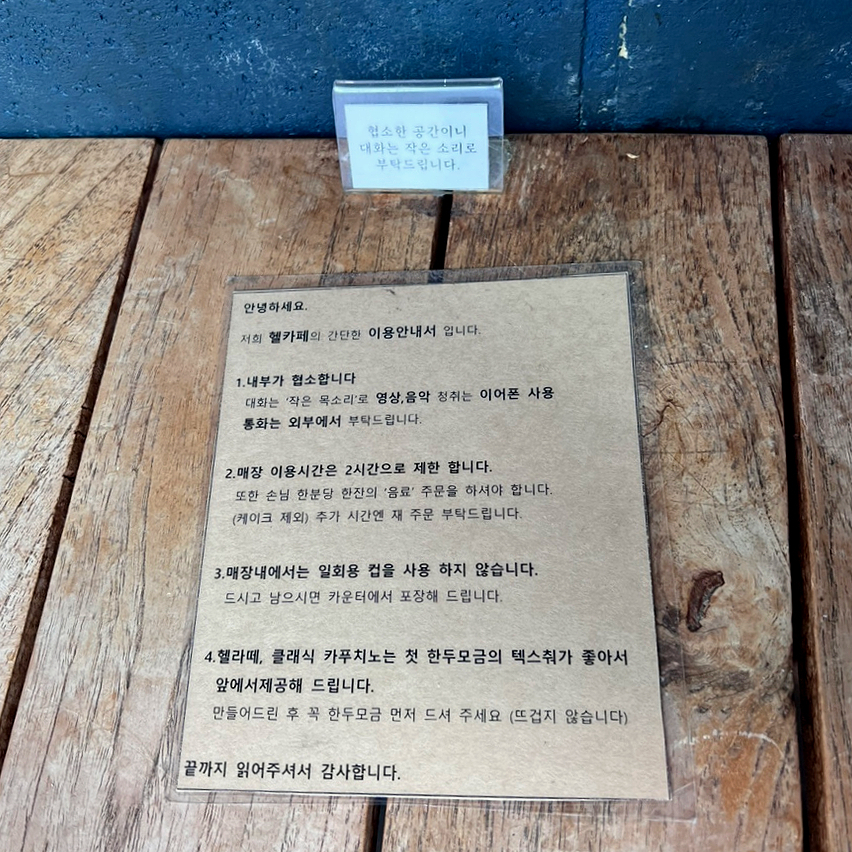 협소한 공간이니
대화는 작은 소리로
부탁드립니다.
안녕하세요.
저희 헬카페의 간단한 이용안내서 입니다.
1.내부가 협소합니다
대화는 '작은 목소리'로 영상,음악 청취는 이어폰 사용
통화는 외부에서 부탁드립니다.
2.매장 이용시간은 2시간으로 제한 합니다.
또한 손님 한분당 한잔의 '음료' 주문을 하셔야 합니다.
(케이크 제외) 추가 시간엔 재 주문 부탁드립니다.
3.매장내에서는 일회용 컵을 사용 하지 않습니다.
드시고 남으시면 카운터에서 포장해 드립니다.
4.헬라떼, 클래식 카푸치노는 첫 한두모금의 텍스춰가 좋아서
앞에서제공해 드립니다.
만들어드린 후 꼭 한두모금 먼저 드셔 주세요 (뜨겁지 않습니다)
끝까지 읽어주셔서 감사합니다.